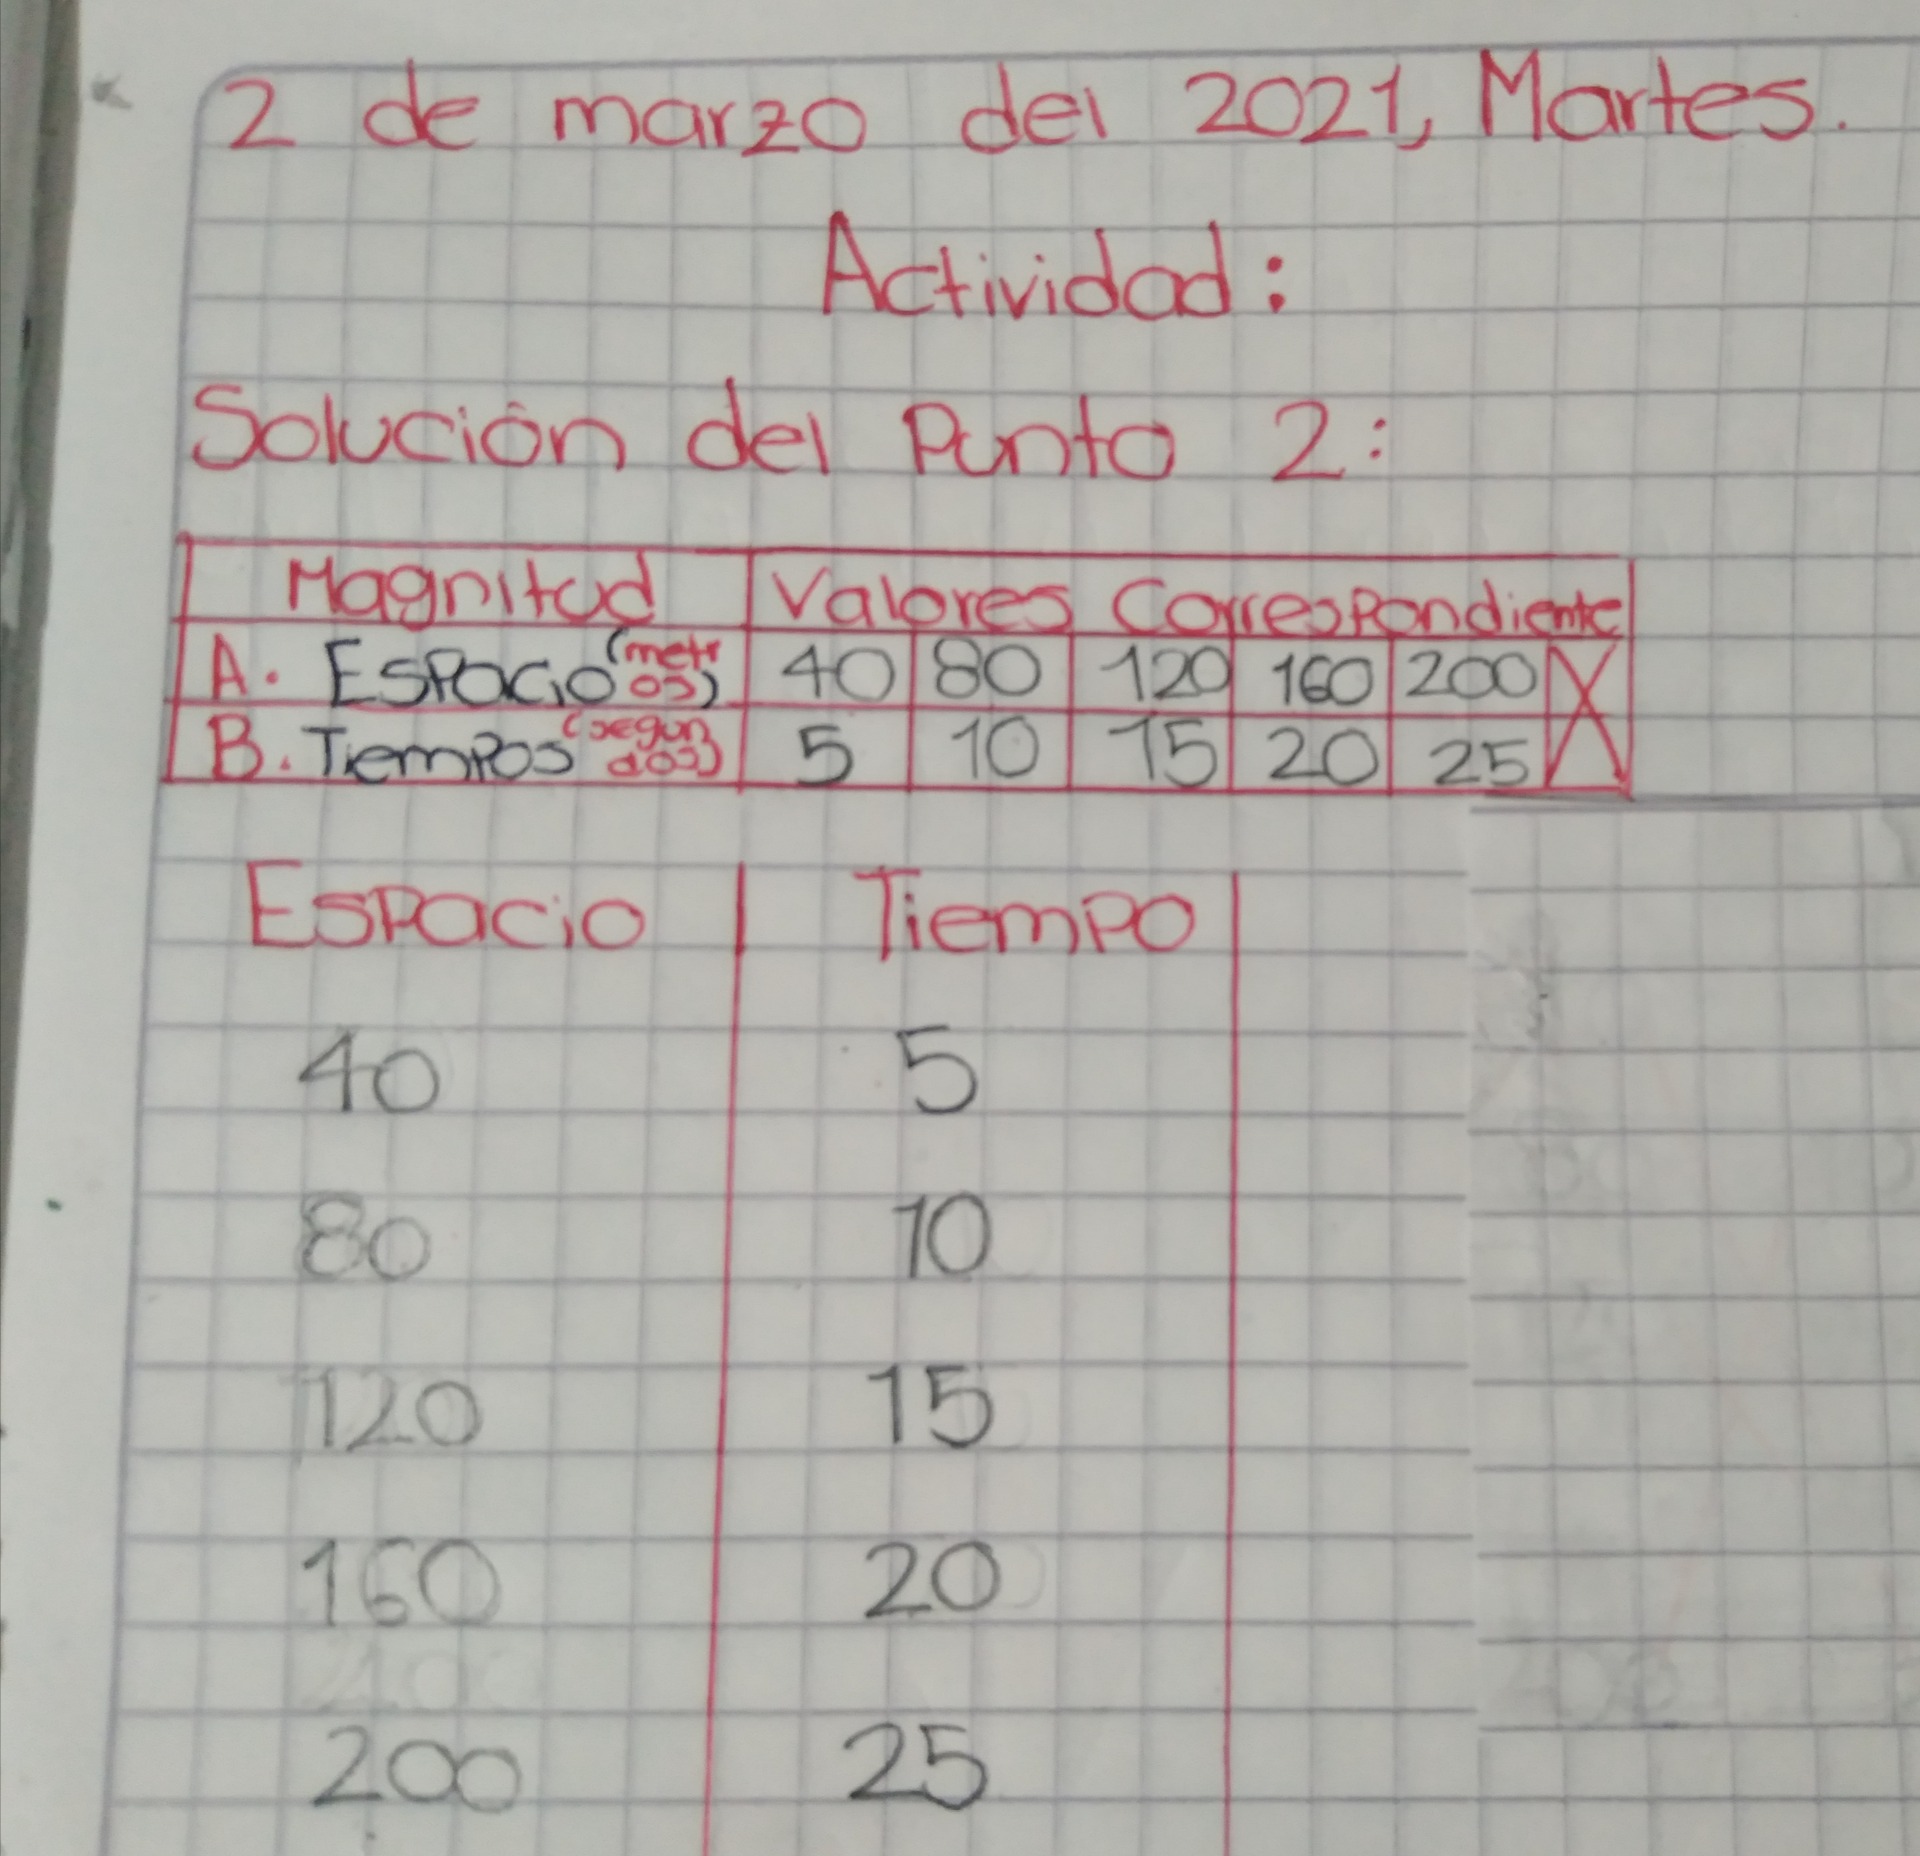 2 de marzo del 2021, Martes.
Actividad:
Solución del Punto 2:
Magnitud Valores Correspondiente
A. Espacio (metros) 40 80 120 160 200
B. Tiempos (segundos) 5 10 15 20 25
Espacio Tiempo
40 5
80 10
120 15
160 20
200 25